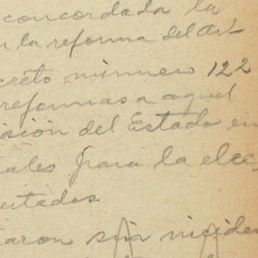 concordada la
n la reforma del Art
creto número 122
reformas a aquel
isión del Estado en
ales para la elec
utados
aron sin inciden